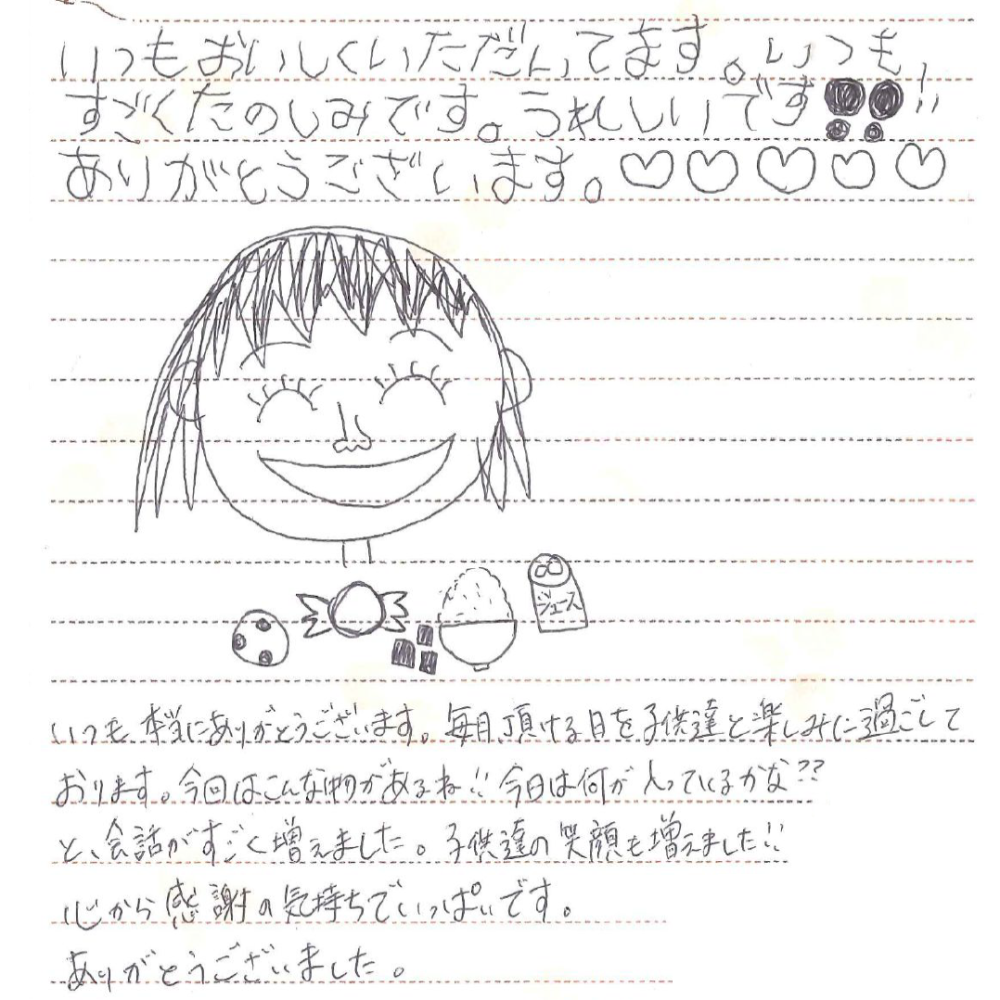 いつもおいしくいただいてます。いつも
すごくたのしみです。うれしいです!!
ありがとうございます。♡♡♡♡♡
ジュース
いつも本当にありがとうございます。毎月、頂ける日を子供達と楽しみに過ごして
おります。今回はこんな物があるね!!今日は何が入っているかな??
と、会話がすごく増えました。子供達の笑顔も増えました!!
心から感謝の気持ちでいっぱいです。
ありがとうございました。